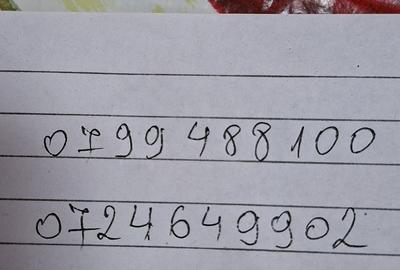 0799 488 100
0724649902